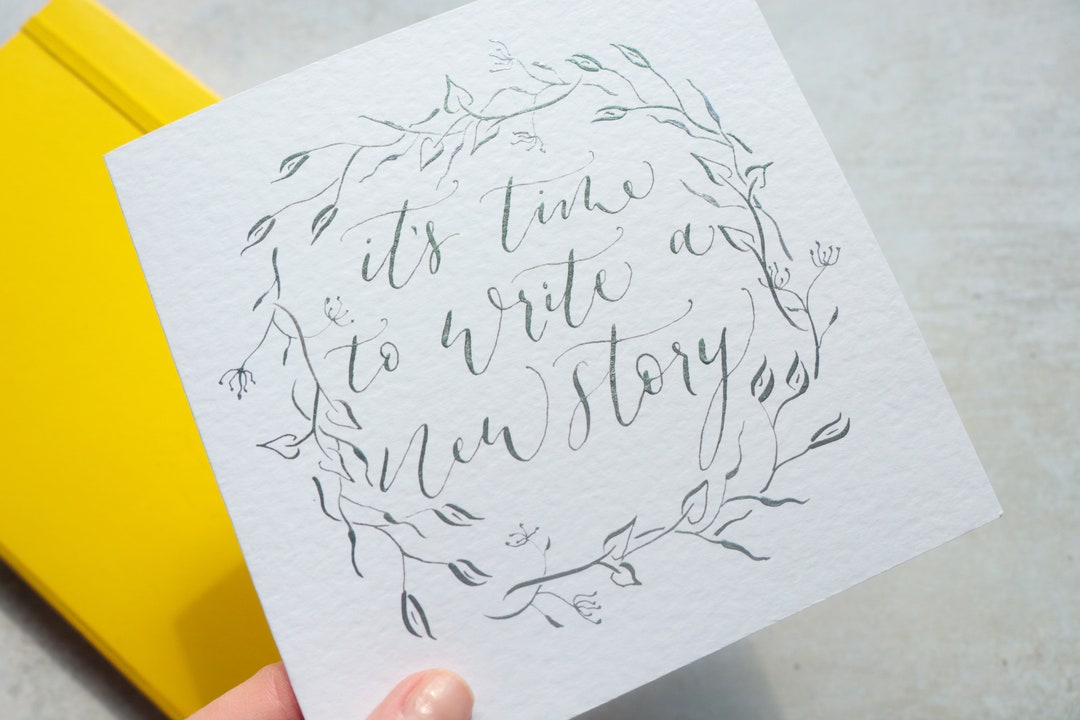 it's time
to write a
new story